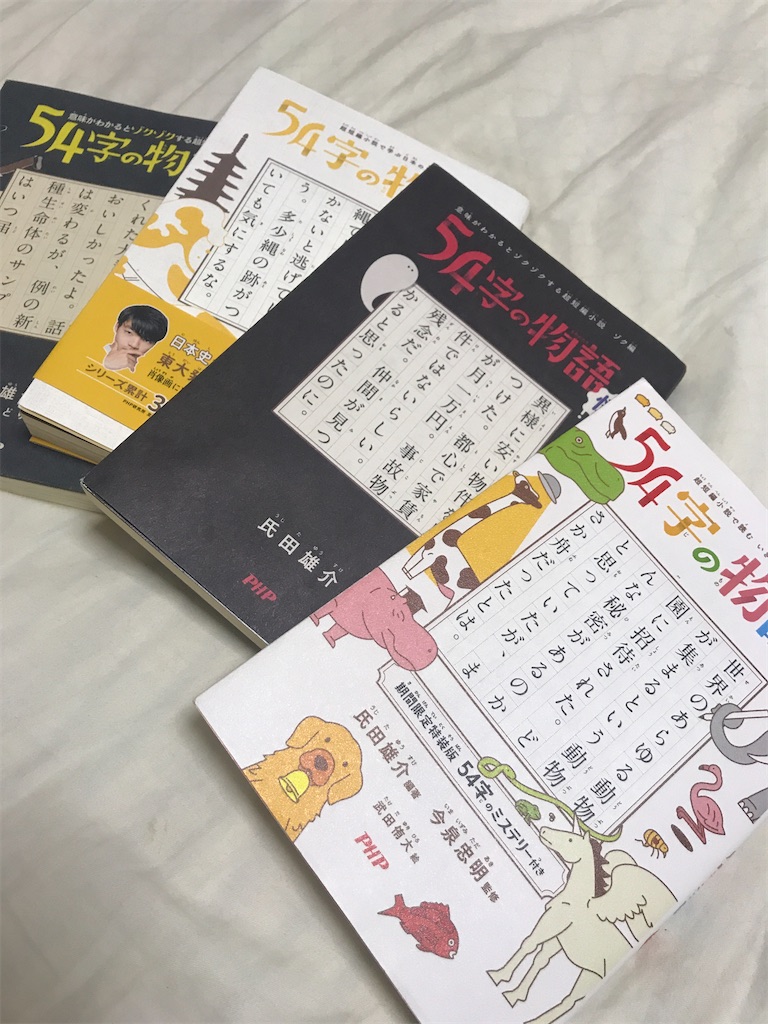 意味がわかるとゾクゾクする超短
54字の物
くれた大
おいしかったよ。話
は変わるが、例の新
種生命体のサンプ
はいつ届
雄
超短編小説で学ぶ日本の
54字の物
縄で
かないと逃げて
う。多少縄の跡がつ
いても気にするな。
日本史
東大
肖像画に
シリーズ累計3
意味がわかるとゾクゾクする超短編小説 ゾク編
54字の物語
異様に安い物件を
つけた。都心で家賃
が月一万円。事故物
件ではないらしい。
残念だ。仲間が見つ
かると思ったのに。
氏田雄介
PHP
超短編小説で読む いき
54字の物
世界のあらゆる動物
が集まるという動物
園に招待された。ど
んな秘密があるのか
と思っていたが、ま
さか舟だったとは。
期間限定特装版 54字のミステリー付き
今泉忠明 監修
氏田雄介 編著
武田侑大 絵
PHP